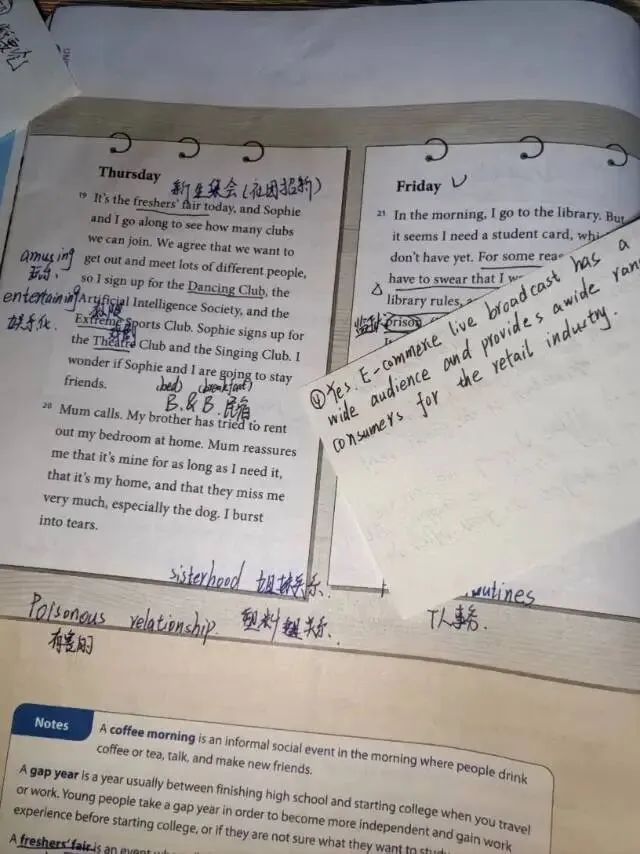 Thursday
新生集会(社团招新)
19 It's the freshers' fair today, and Sophie
and I go along to see how many clubs
we can join. We agree that we want to
get out and meet lots of different people,
so I sign up for the Dancing Club, the
Artificial Intelligence Society, and the
Extreme Sports Club. Sophie signs up for
the Theatre Club and the Singing Club. I
wonder if Sophie and I are going to stay
friends.
amusing
entertaining
娱乐化.
(bed) (breakfast)
B.&B.民宿
20 Mum calls. My brother has tried to rent
out my bedroom at home. Mum reassures
me that it's mine for as long as I need it,
that it's my home, and that they miss me
very much, especially the dog. I burst
into tears.
Friday
21 In the morning, I go to the library. But
it seems I need a student card,
don't have yet. For some
have to swear that I
library rules,
监狱 prison
④ Yes. E-commerce live broadcast has a
wide audience and provides a wide
consumers for the retail industry.
sisterhood 姐妹关系.
Poisonous relationship. 塑料 关系.
有害的
routines
Notes
A coffee morning is an informal social event in the morning where people drink
coffee or tea, talk, and make new friends.
A gap year is a year usually between finishing high school and starting college when you travel
or work. Young people take a gap year in order to become more independent and gain work
experience before starting college, or if they are not sure what they want to study
A freshers' fair is an event